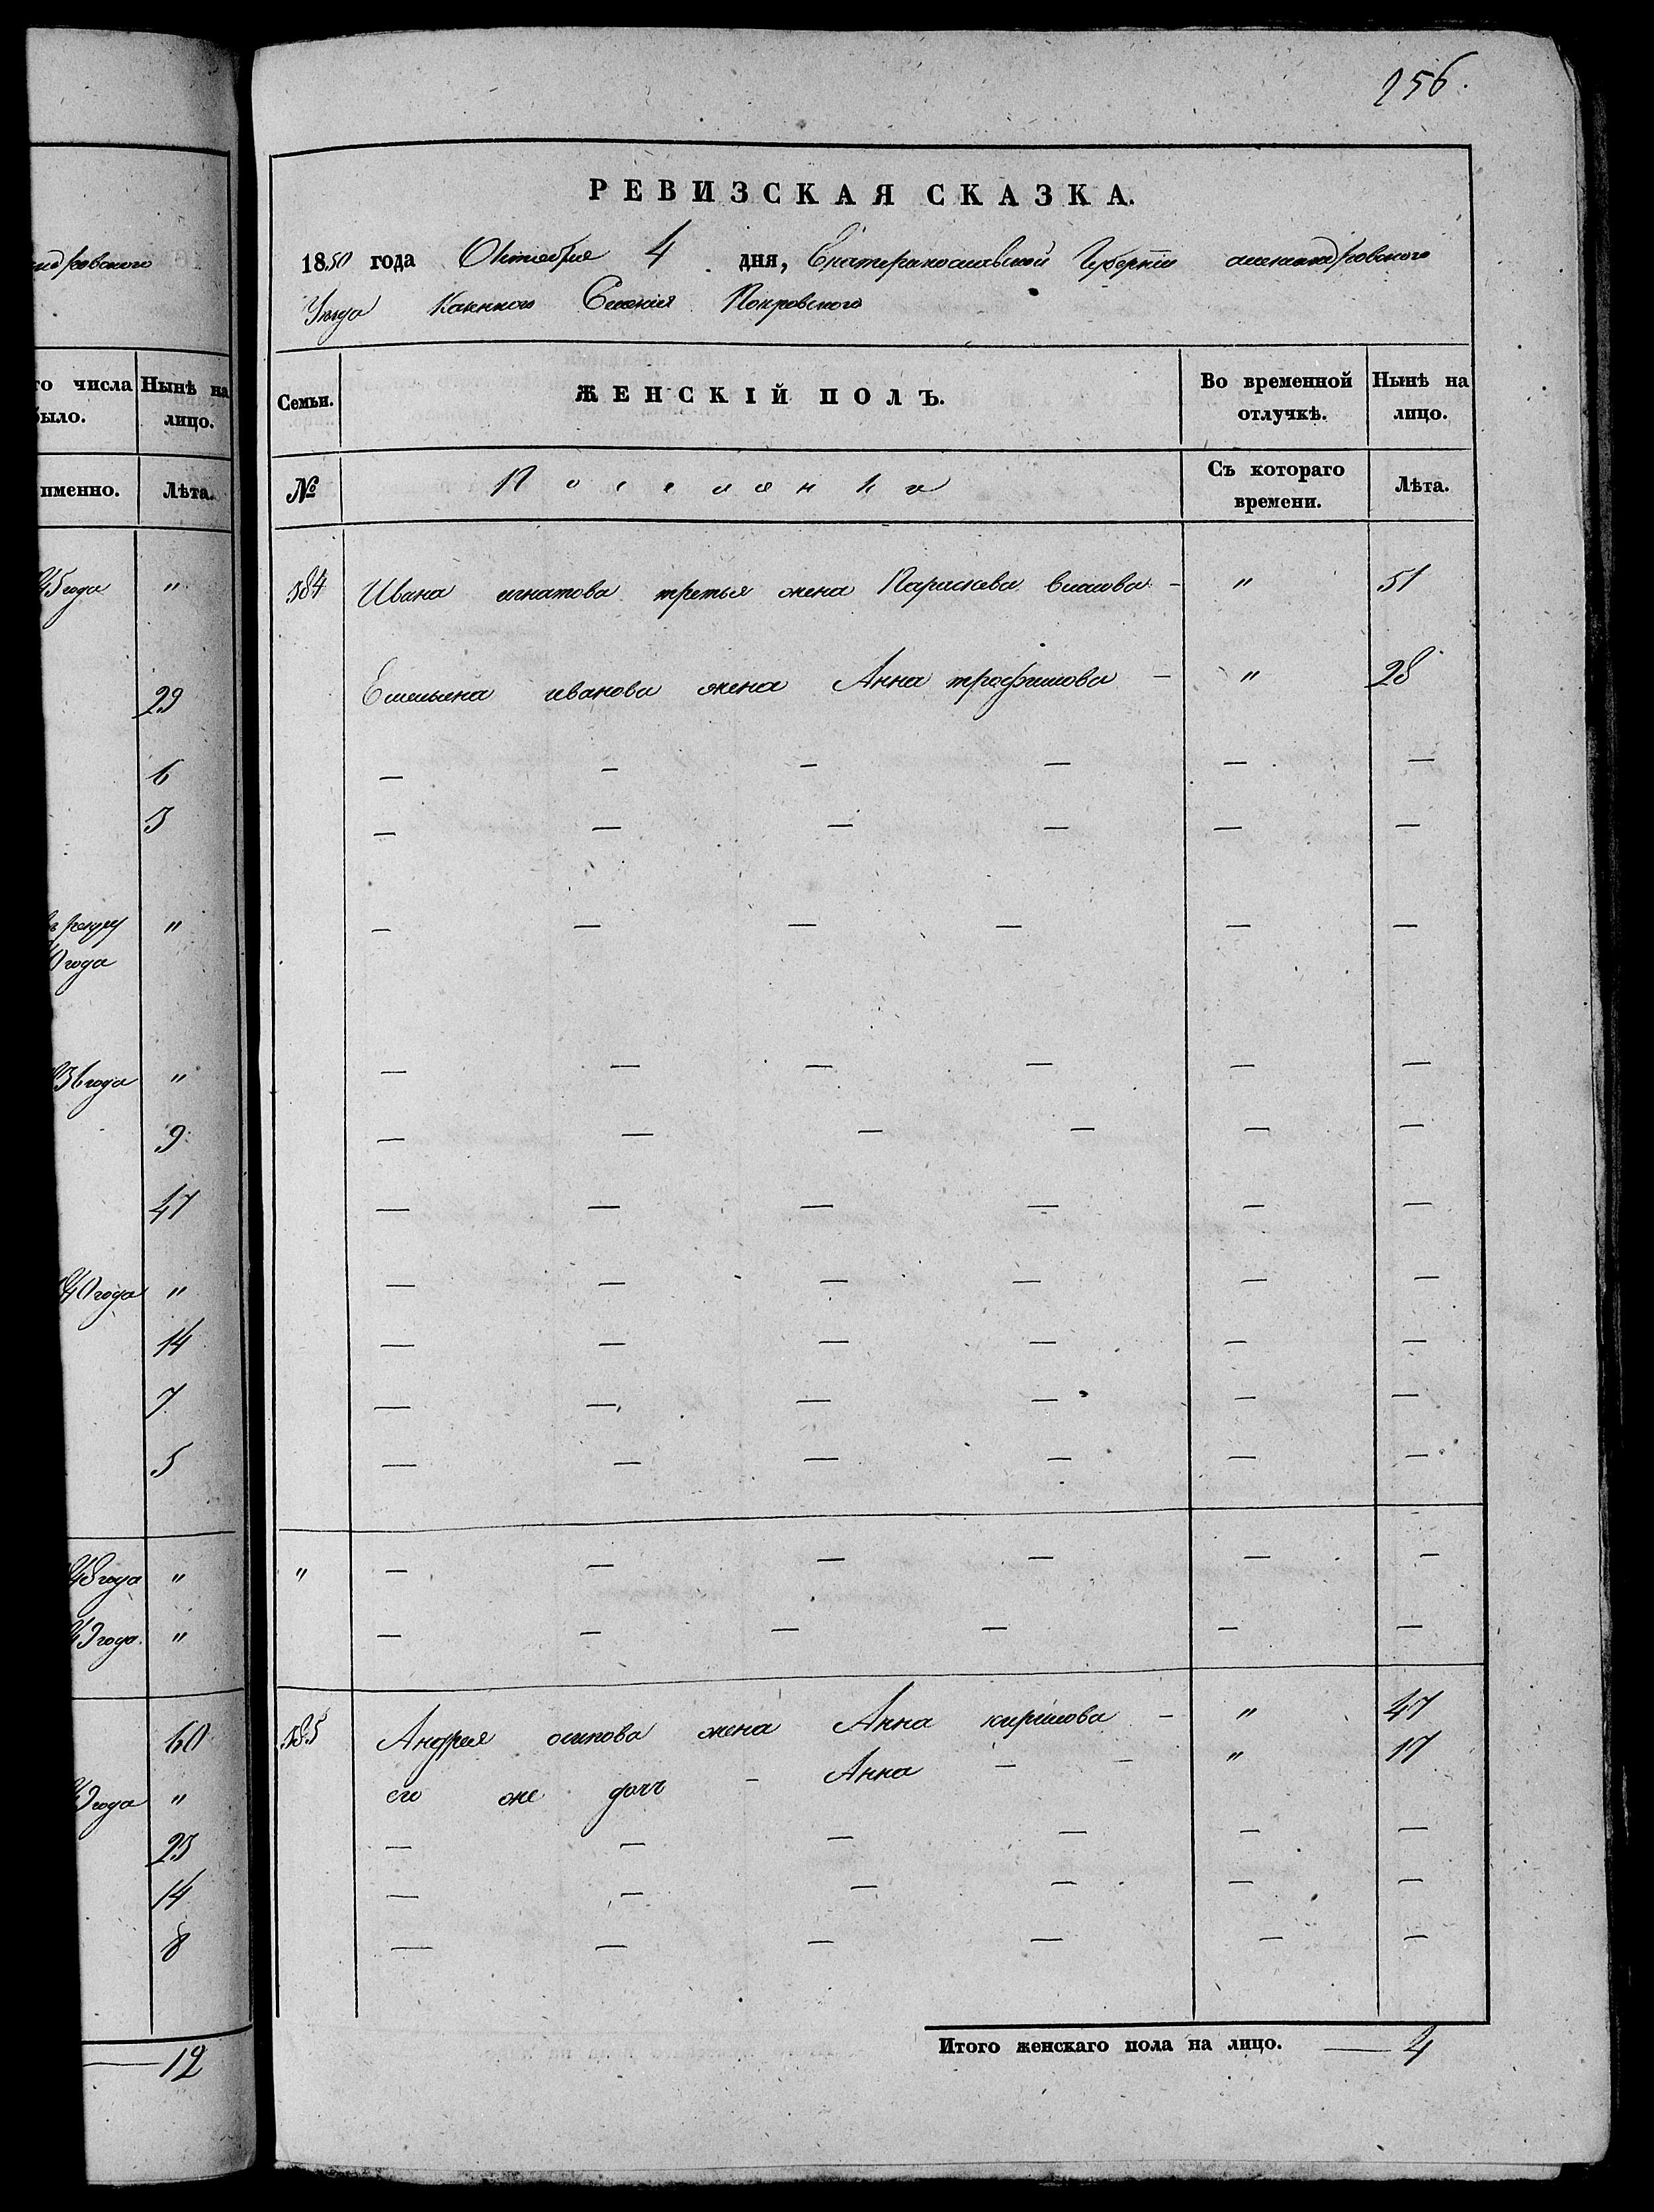 256.
РЕВИЗСКАЯ СКАЗКА.
1850 года Октября 4 дня, Екатеринославской Губернии александровского
Уезда Казенного Селения Покровского
Семьи.
ЖЕНСКІЙ ПОЛЪ.
Во временной отлучкѣ.
Нынѣ на лицо.
№
Поселянки
Съ котораго времени.
Лѣта.
584 Ивана игнатова третья жена Параскева власова - " 51
Емельяна иванова жена Анна трофимова - " 28
— — — — — —
— — — — — —
— — — — — —
— — — — — —
— — — — — —
— — — — — —
— — — — — —
— — — — — —
— — — — — —
— — — — — —
" — — — — — —
— — — — — —
585 Андрея осипова жена Анна кирилова - " 47
его же дочь - Анна - - " 17
— — — — — —
— — — — — —
— — — — — —
Итого женскаго пола на лицо. — 4
го числа
было.
Нынѣ на
лицо.
именно.
Лѣта.
45 года "
29
6
3
"
0 года
36 года "
9
47
40 года "
14
7
5
48 года "
49 года "
60
года "
23
14
8
— 12